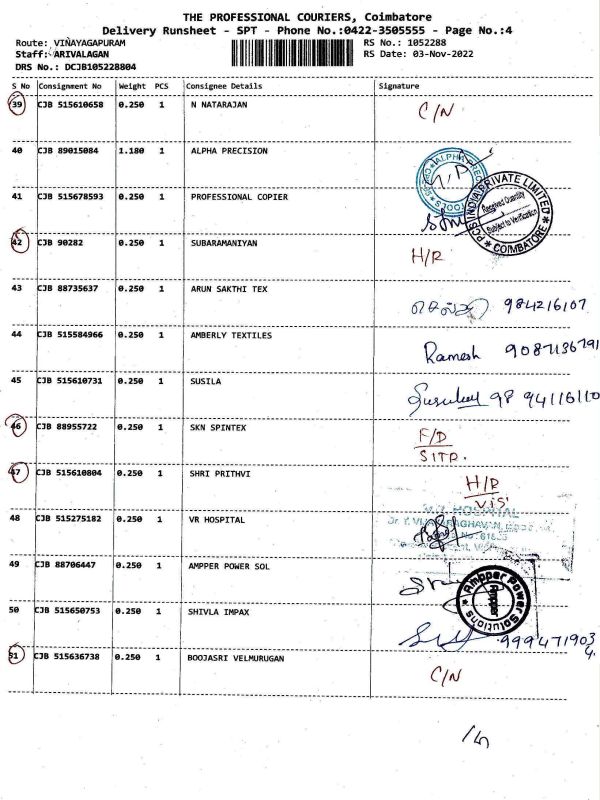 THE PROFESSIONAL COURIERS, Coimbatore
Delivery Runsheet - SPT - Phone No.:0422-3505555 - Page No.:4
Route: VINAYAGAPURAM RS No.: 1052288
Staff: ARIVALAGAN RS Date: 03-Nov-2022
DRS No.: DCJB105228804
S No Consignment No Weight PCS Consignee Details Signature
39 CJB 515610658 0.250 1 N NATARAJAN C/N
40 CJB 89015084 1.180 1 ALPHA PRECISION
ALPHA TOOLS
41 CJB 515678593 0.250 1 PROFESSIONAL COPIER
INDIA PRIVATE LIMITED
Received Quantity
Subject to Verification
COIMBATORE
42 CJB 90282 0.250 1 SUBARAMANIYAN H/R
43 CJB 88735637 0.250 1 ARUN SAKTHI TEX 984216107
44 CJB 515584966 0.250 1 AMBERLY TEXTILES Ramesh 9087136791
45 CJB 515610731 0.250 1 SUSILA 98 94116110
46 CJB 88955722 0.250 1 SKN SPINTEX F/D
SITP.
47 CJB 515610804 0.250 1 SHRI PRITHVI H/R
VIS'
48 CJB 515275182 0.250 1 VR HOSPITAL
HOSPITAL
49 CJB 88706447 0.250 1 AMPPER POWER SOL
Ampper Power Solutions
Ampper
50 CJB 515650753 0.250 1 SHIVLA IMPAX 9994719034.
51 CJB 515636738 0.250 1 BOOJASRI VELMURUGAN C/N